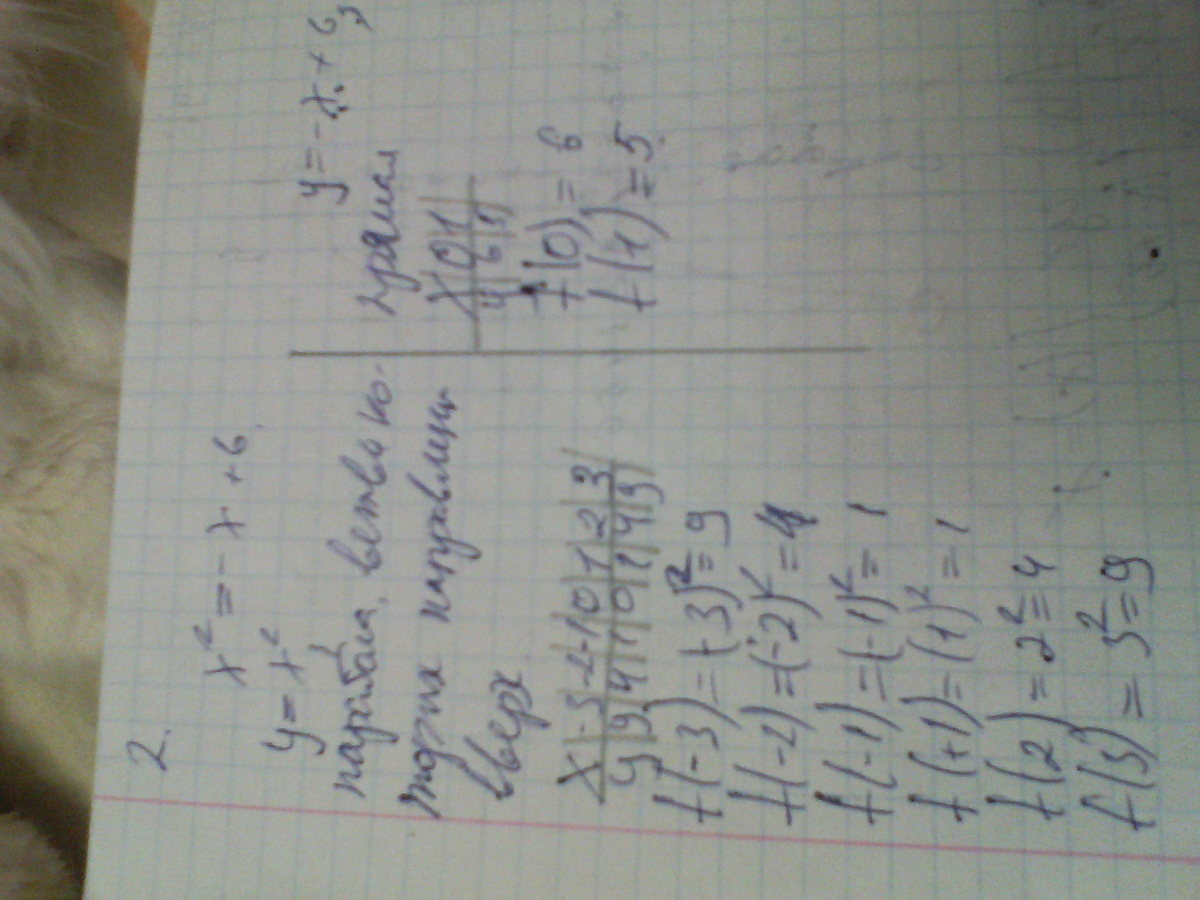 2.
x² = -x + 6.
y = x²
парабола, ветви ко-
торой направлены
вверх
x | -3 | -2 | -1 | 0 | 1 | 2 | 3
y | 9 | 4 | 1 | 0 | 1 | 4 | 9
f(-3) = (-3)² = 9
f(-2) = (-2)² = 4
f(-1) = (-1)² = 1
f(+1) = (1)² = 1
f(2) = 2² = 4
f(3) = 3² = 9
y = -x + 6,
прямая
x | 0 | 1
y | 6 | 5
f(0) = 6
f(1) = 5.